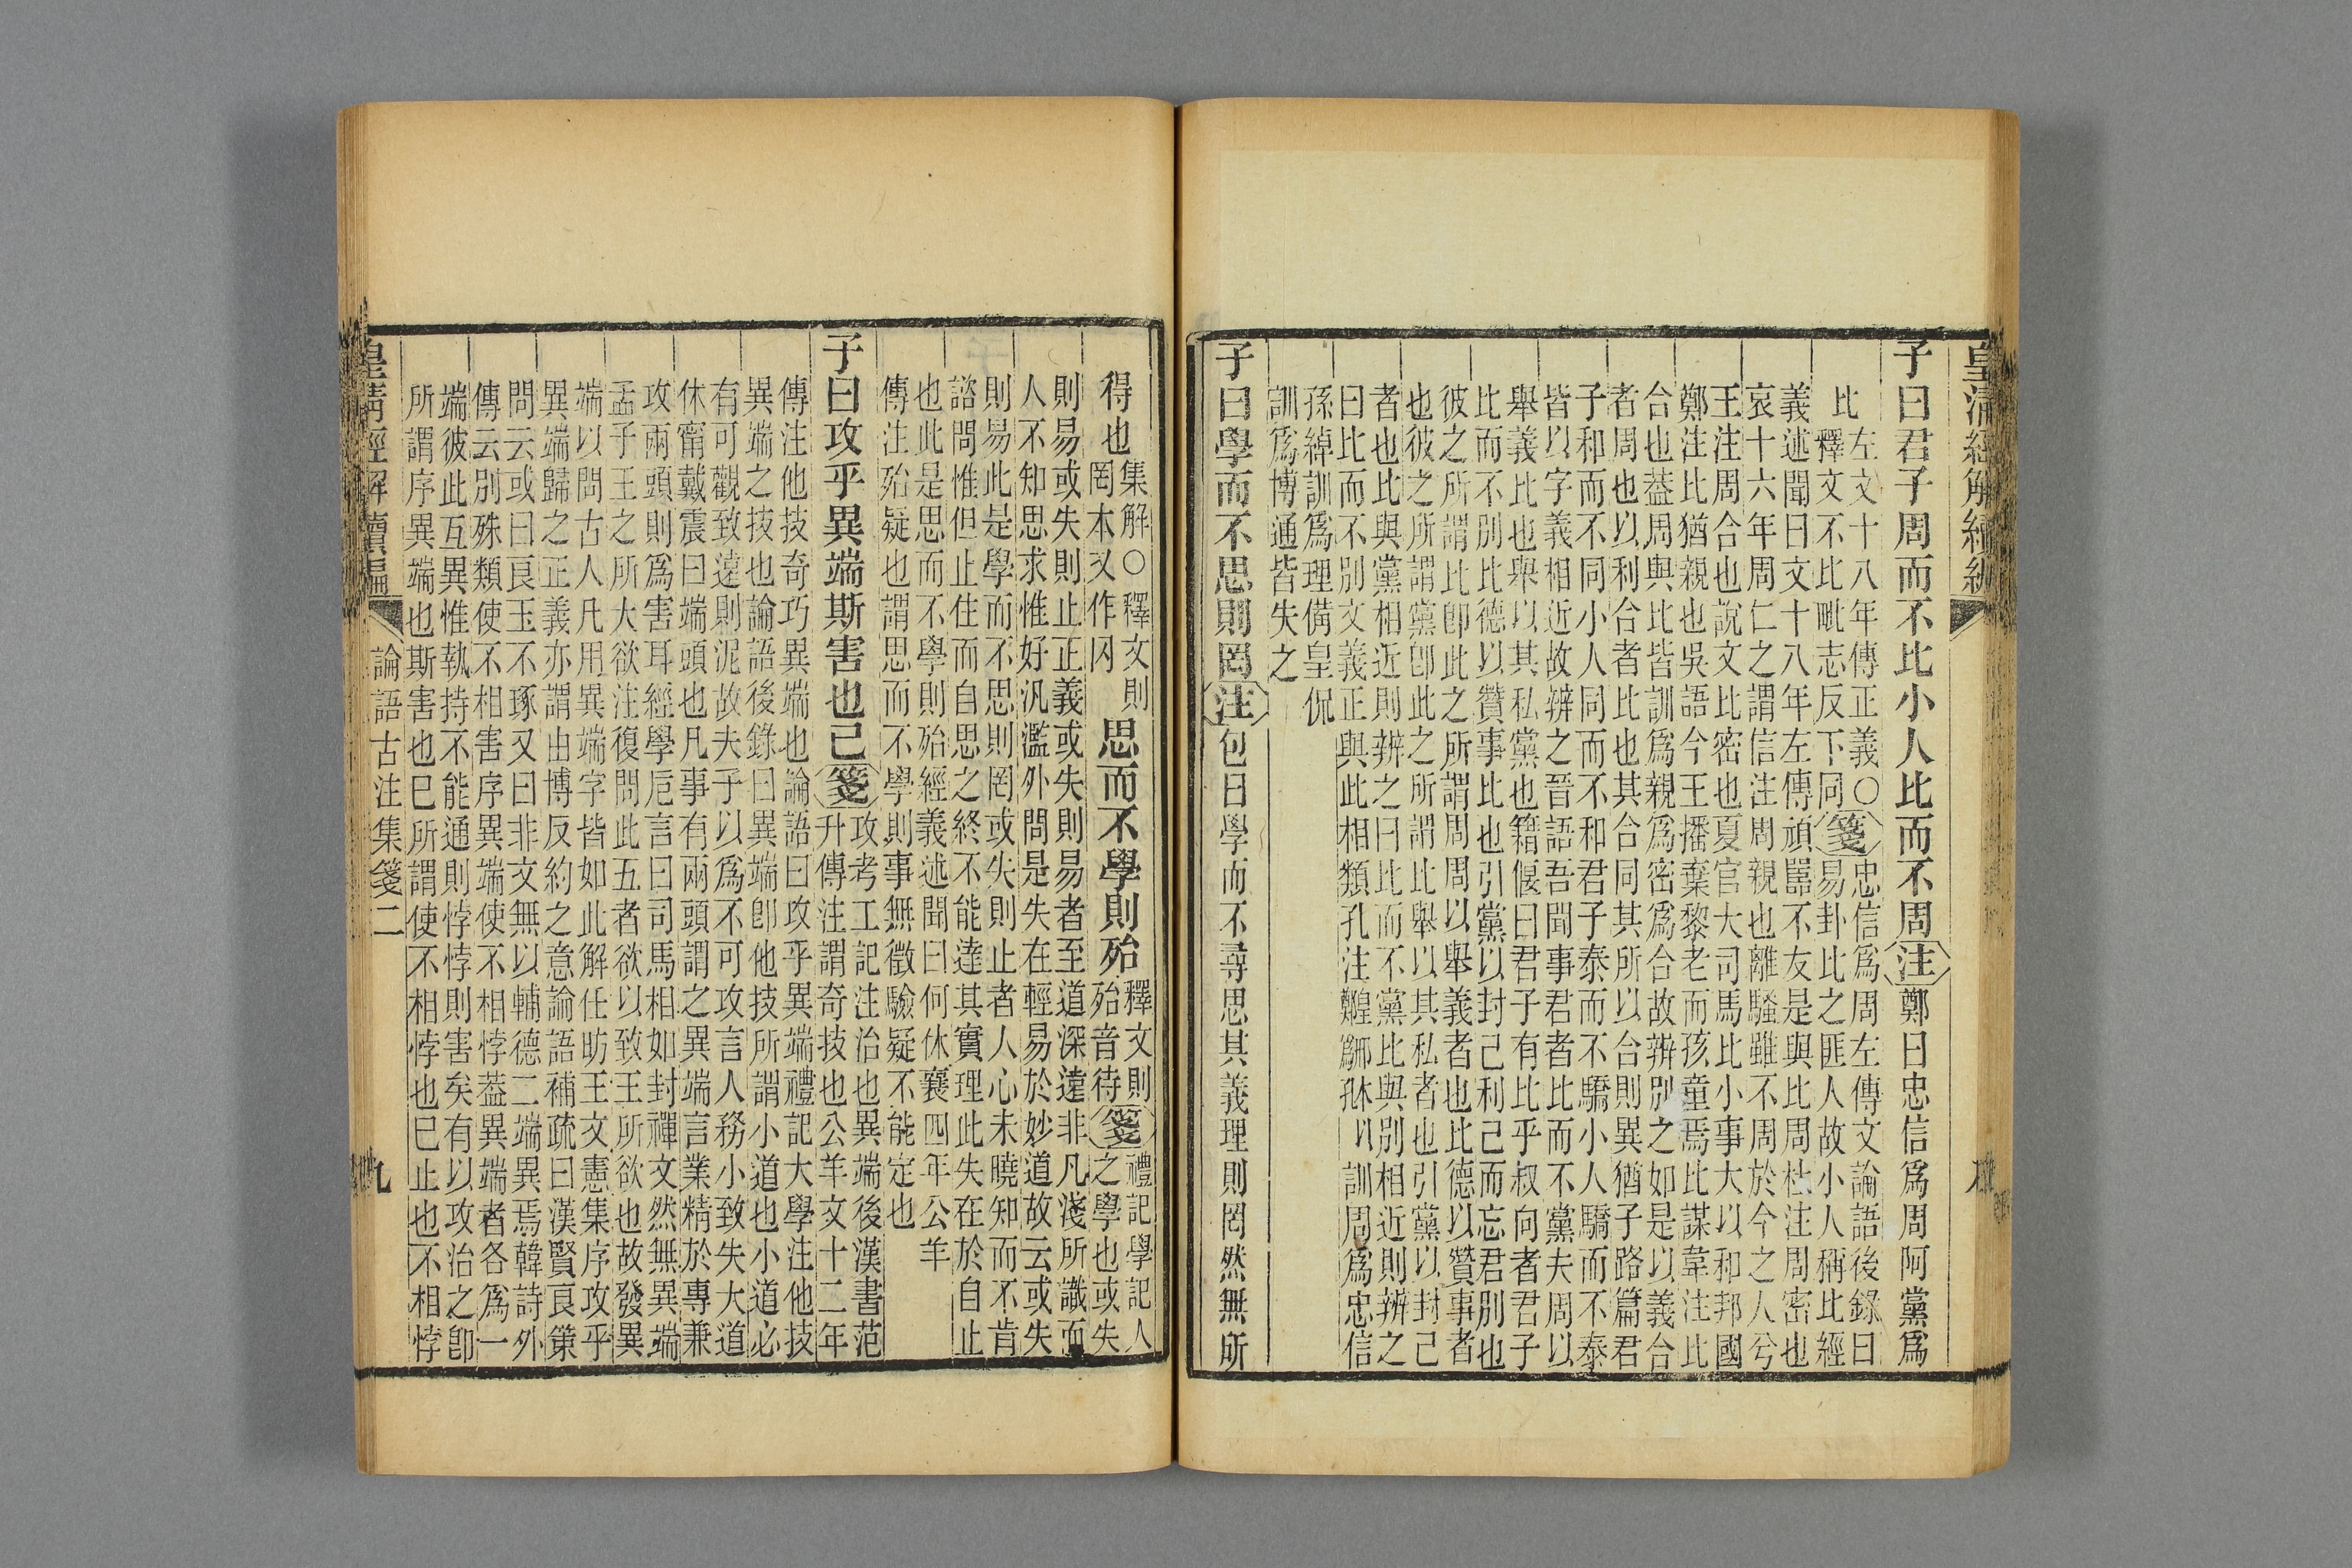 子曰君子周而不比小人比而不周注鄭曰忠信爲周阿黨爲
比
左文十八年傳正義〇
釋文不比毗志反下同
箋
忠信爲周左傳文論語後錄曰
易卦比之匪人故小人稱比經
義述聞曰文十八年左傳頑嚚不友是與比周杜注周密也
哀十六年周仁之謂信注周親也離騷雖不周於今之人兮
王注周合也說文比密也夏官大司馬比小事大以和邦國
鄭注比猶親也吳語今王播棄黎老而孩童焉比謀韋注比
合也葢周與比皆訓爲親爲密爲合故辨別之如是以義合
者周也以利合者比也其合同其所以合則異猶子路篇君
子和而不同小人同而不和君子泰而不驕小人驕而不泰
皆以字義相近故辨之晉語吾聞事君者比而不黨夫周以
舉義比也舉以其私黨也籍偃曰君子有比乎叔向者君子
比而不別比德以贊事比也引黨以封己利己而忘君別也
彼之所謂比卽此之所謂周周以舉義者也比德以贊事者
也彼之所謂黨卽此之所謂比舉以其私者也引黨以封己
者也比與黨相近則辨之曰比而不黨比與別相近則辨之
曰比而不別文義正與此相類孔注以訓周爲忠信
孫綽訓爲理備皇侃
訓爲博通皆失之
子曰學而不思則罔注包曰學而不尋思其義理則罔然無所
得也
集解〇釋文則
罔本又作冈
思而不學則殆
釋文則
殆音待
箋
禮記學記人
之學也或失
則易或失則止正義或失則易者至道深遠非凡淺所識而
人不知思求惟好汎濫外問是失在輕易於妙道故云或失
則易此是學而不思則罔或失則止者人心未曉知而不肯
諮問惟但止住而自思之終不能達其實理此失在於自止
也此是思而不學則殆經義述聞曰何休襄四年公羊
傳注殆疑也謂思而不學則事無徵驗疑不能定也
子曰攻乎異端斯害也已箋
攻考工記注治也異端後漢書范
升傳注謂奇技也公羊文十二年
傳注他技奇巧異端也論語曰攻乎異端禮記大學注他技
異端之技也論語後錄曰異端卽他技所謂小道也小道必
有可觀致遠則泥故夫子以爲不可攻言人務小致失大道
休甯戴震曰端頭也凡事有兩頭謂之異端言業精於專兼
攻兩頭則爲害耳經學巵言曰司馬相如封禪文然無異端
孟子王之所大欲注復問此五者欲以致王所欲也故發異
端以問古人凡用異端字皆如此解任昉王文憲集序攻乎
異端歸之正義亦謂由博反約之意論語補疏曰漢賢良策
問云或曰良玉不琢又曰非文無以輔德二端異焉韓詩外
傳云別殊類使不相害序異端使不相悖葢異端者各爲一
端彼此互異惟執持不能通則悖悖則害矣有以攻治之卽
所謂序異端也斯害也已所謂使不相悖也已止也不相悖
皇清經解續編
論語古注集箋二
九